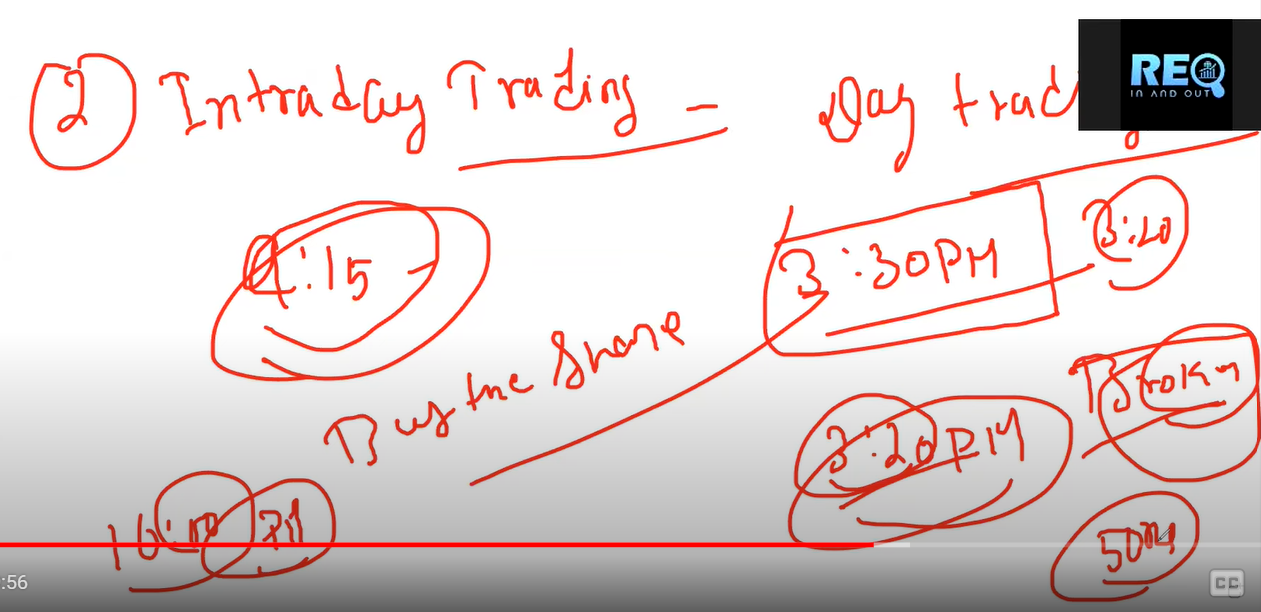 2 Intraday Trading - Day trad
REQ
IN AND OUT
9:15
3:30PM
3:20
Buy the Share
Broker
3:20PM
10:00
50
:56
CC